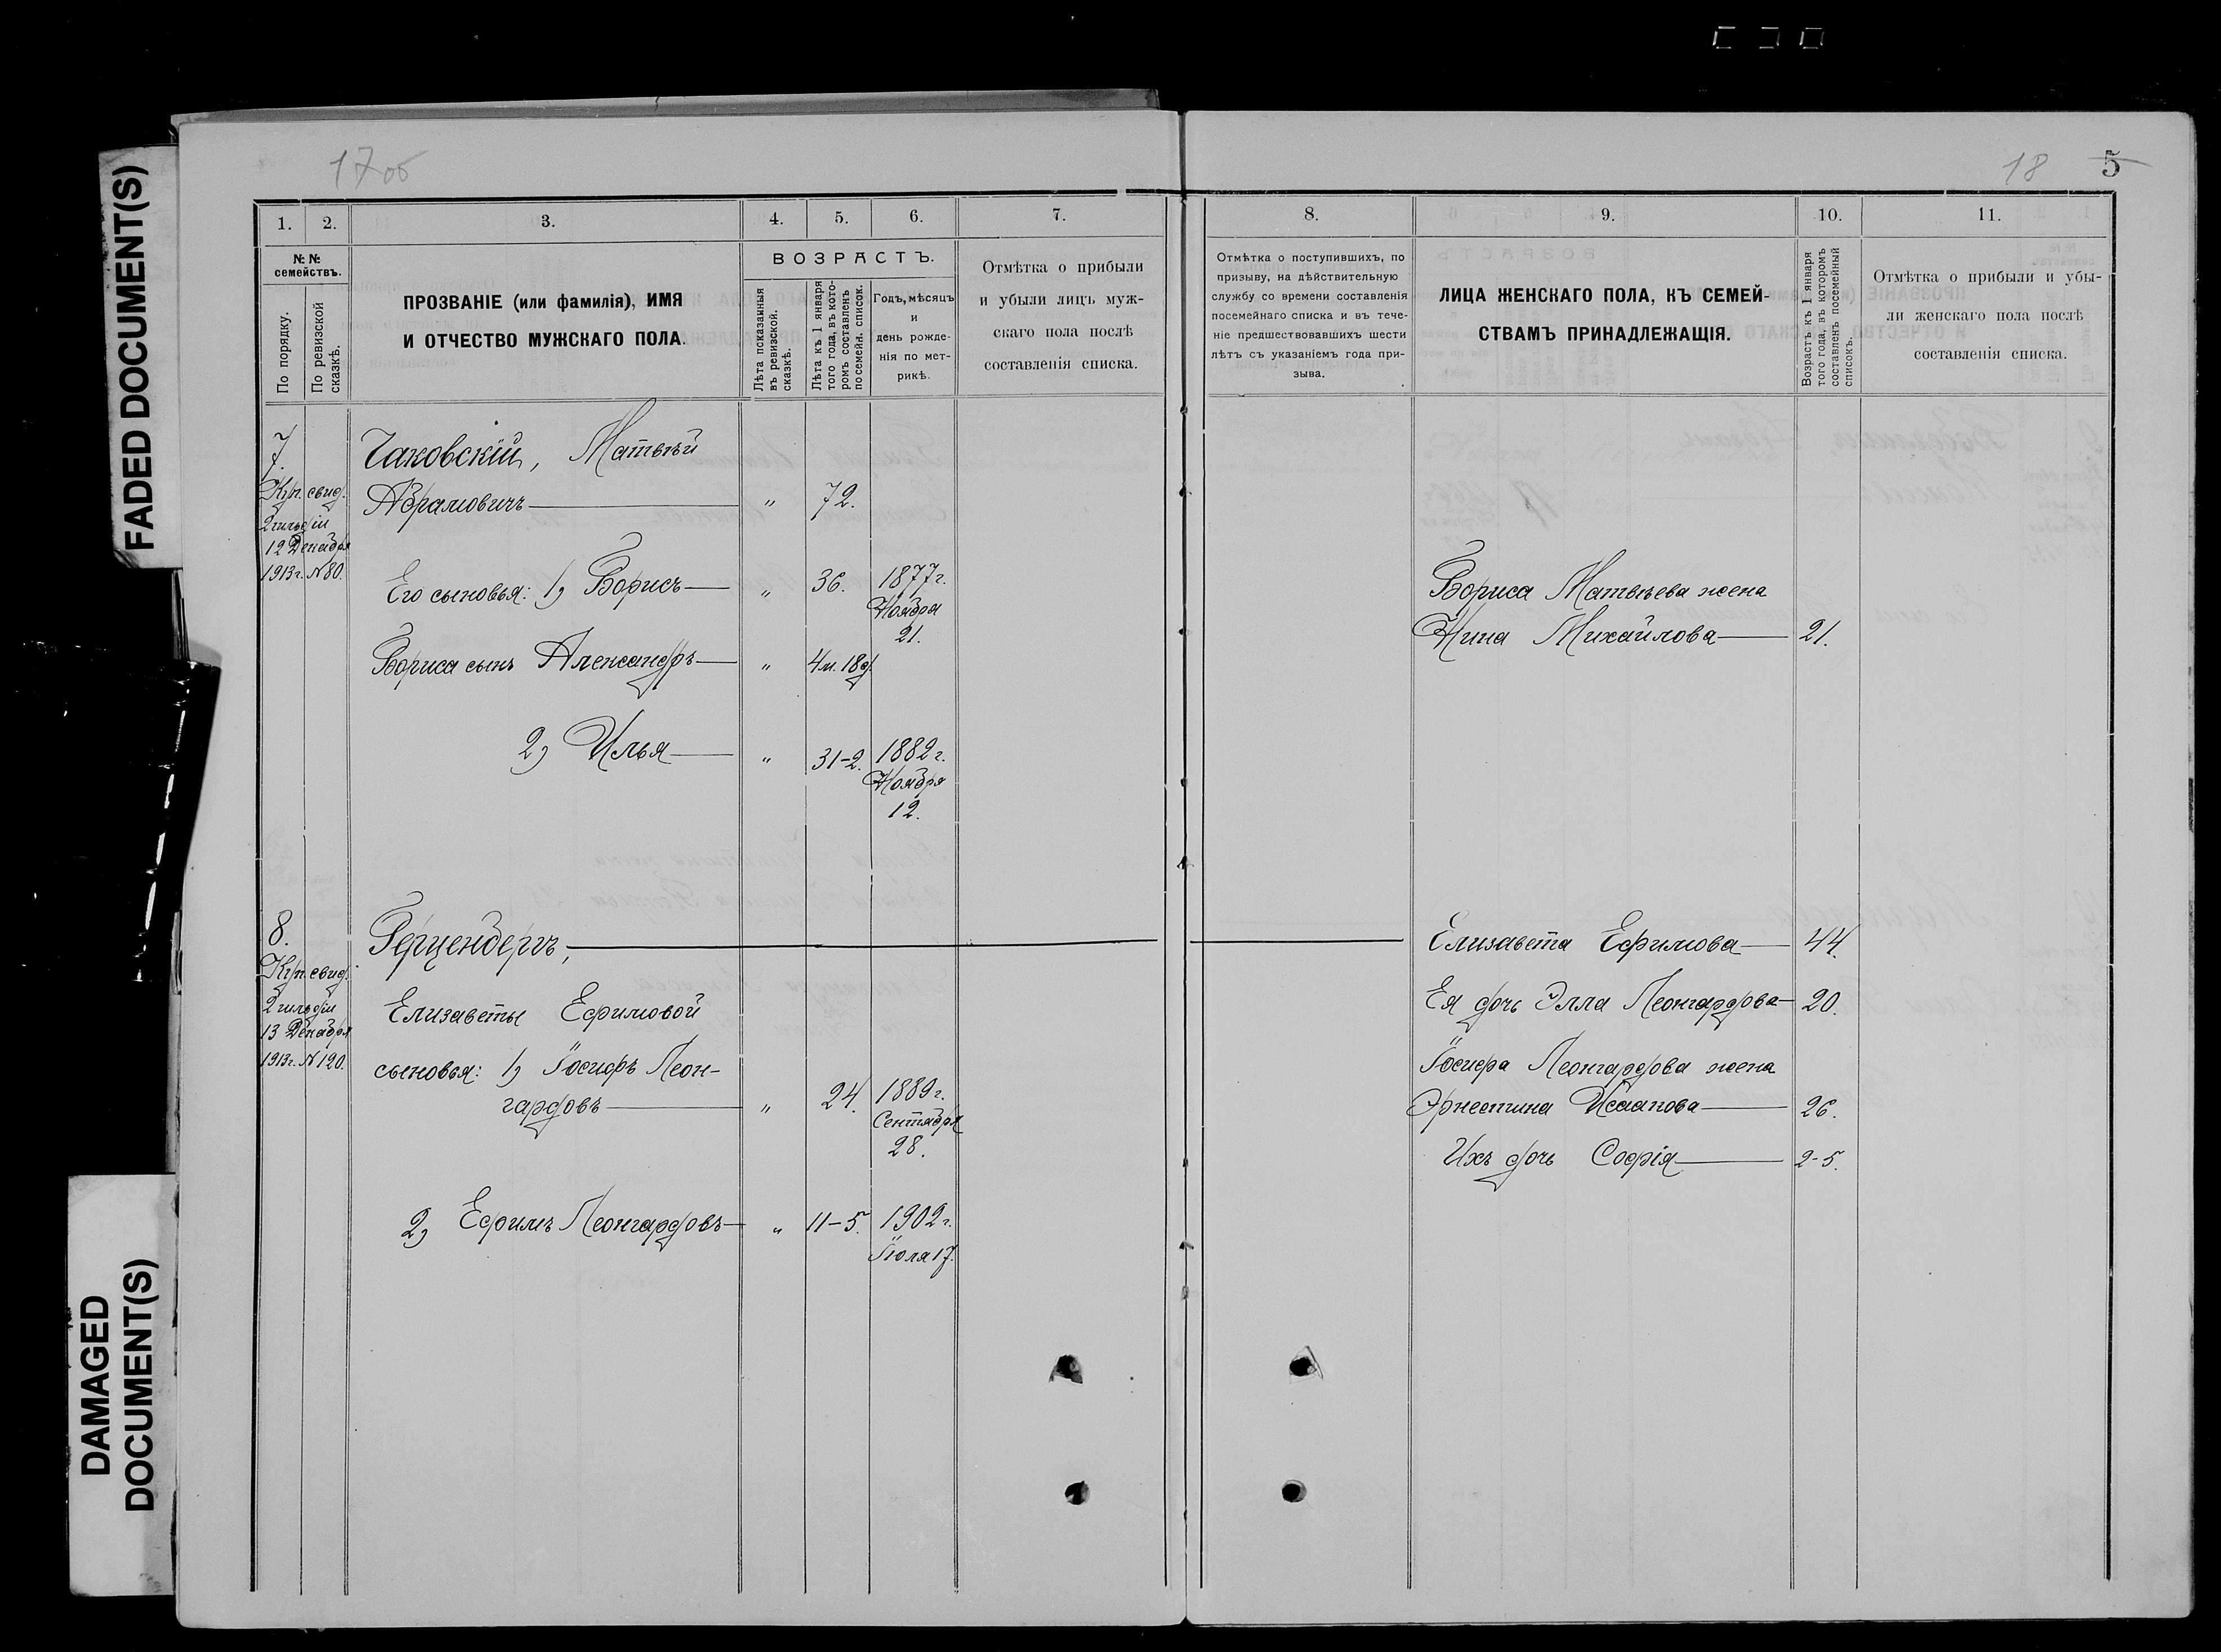 FADED DOCUMENT(S)
DAMAGED
DOCUMENT(S)
17об
18 5
1. 2. 3. 4. 5. 6. 7.
№ №
семействъ.
По порядку.
По ревизской
сказкѣ.
ПРОЗВАНІЕ (или фамилія), ИМЯ
И ОТЧЕСТВО МУЖСКАГО ПОЛА.
ВОЗРАСТЪ.
Лѣта показанныя
въ ревизской.
сказкѣ.
Лѣта къ 1 января
того года, въ кото-
ромъ составленъ
посемейн. список.
Годъ, мѣсяцъ
и
день рожде-
нія по мет-
рикѣ.
Отмѣтка о прибыли
и убыли лицъ муж-
скаго пола послѣ
составленія списка.
7.
Куп. свид.
2 гильдіи
12 Декабря
1913 г. № 80.
Чаковскій, Матвѣй
Абрамовичъ — " 72.
Его сыновья: 1) Борисъ — " 36. 1877 г.
Ноября
21.
Бориса сынъ Александръ — " 4 м. 18 д.
2) Илья — " 31-2. 1882 г.
Ноября
12.
8.
Куп. свид.
2 гильдіи
13 Декабря
1913 г. № 120.
Герценбергъ,
Елизаветы Ефимовой
сыновья: 1) Іосифъ Леон-
гардовъ — " 24. 1889 г.
Сентября
28.
2) Ефимъ Леонгардовъ — " 11-5. 1902 г.
Іюля 17.
8. 9. 10. 11.
Отмѣтка о поступившихъ, по
призыву, на дѣйствительную
службу со времени составленія
посемейнаго списка и въ тече-
ніе предшествовавшихъ шести
лѣтъ съ указаніемъ года при-
зыва.
ЛИЦА ЖЕНСКАГО ПОЛА, КЪ СЕМЕЙ-
СТВАМЪ ПРИНАДЛЕЖАЩІЯ.
Возрастъ къ 1 января
того года, въ которомъ
составленъ посемейный
списокъ.
Отмѣтка о прибыли и убы-
ли женскаго пола послѣ
составленія списка.
Бориса Матвѣева жена
Нина Михайлова — 21.
Елизавета Ефимова — 44.
Ея дочь Элла Леонгардова — 20.
Іосифа Леонгардова жена
Эрнестина Исаакова — 26.
Ихъ дочь Софія — 2-5.